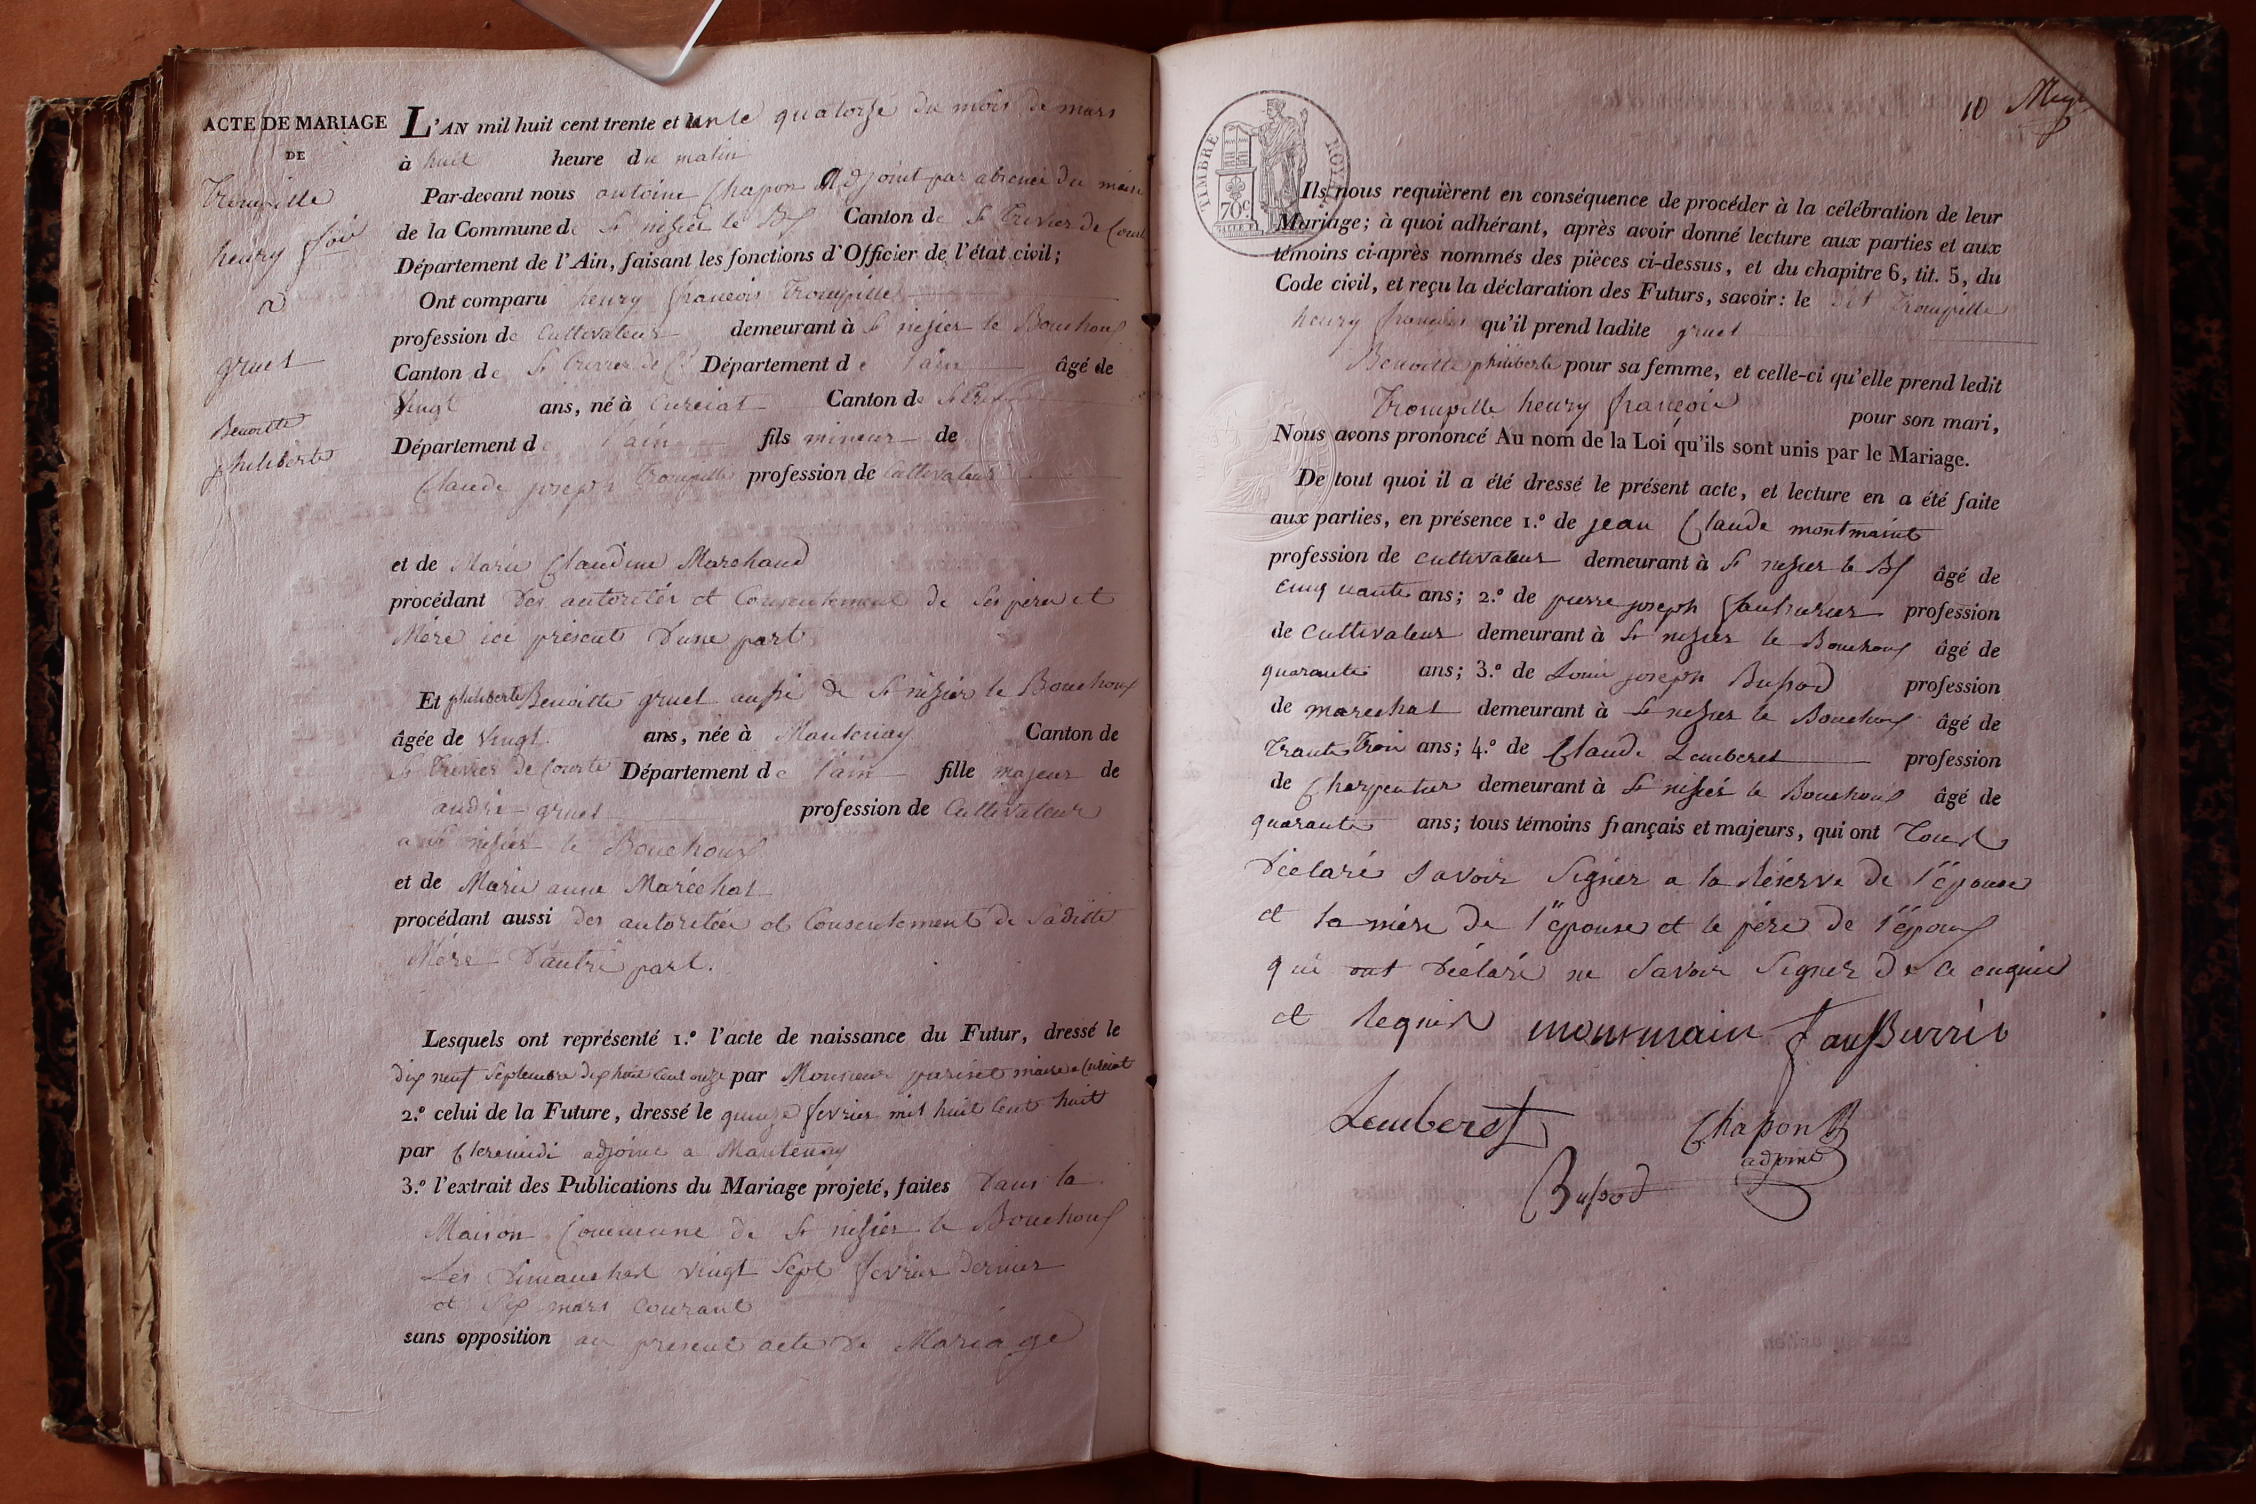 ACTE DE MARIAGE
DE
Trompille
henry foi
a
gruet
Benoitte
philiberte
L'AN mil huit cent trente et un le quatorse du mois de mars
à huit heure du matin
Par-devant nous antoine Chapon Adjoint par absence du maire
de la Commune de St nisier le Bx Canton de St Trivier de Court
Département de l'Ain, faisant les fonctions d'Officier de l'état civil;
Ont comparu henry françois Trompille
profession de Cultivateur demeurant à St nisier le Bouchoux
Canton de St Trivier de C. Département de l'ain âgé de
Vingt ans, né à Curciat Canton de St Triv
Département de l'ain fils mineur de
Claude joseph Trompille profession de Cultivateur
et de Marie Claudine Marchand
procédant des autoritées et Consentement de ses père et
Mère ici présents D'une part
Et philiberte Benoitte gruet aussi de St nisier le Bouchoux
âgée de Vingt ans, née à Mantenay Canton de
St Trivier de Courte Département de l'ain fille majeur de
andré gruet profession de Cultivateur
a St nisier le Bouchoux
et de Marie anne Maréchat
procédant aussi des autoritées et Consentement de Saditte
Mère D'autre part.
Lesquels ont représenté 1.º l'acte de naissance du Futur, dressé le
dix neuf Septembre dix huit Cent onze par Monsieur maire a Curciat
2.º celui de la Future, dressé le quinze fevrier mil huit Cent huit
par adjoint a Mantenay
3.º l'extrait des Publications du Mariage projeté, faites Dans la
Maison Commune de St nisier le Bouchoux
Les Dimanches vingt Sept fevrier Dernier
et Six mars Courant
sans opposition au présent acte de Mariage
10
TIMBRE ROYAL
70c
Ils nous requièrent en conséquence de procéder à la célébration de leur
Mariage; à quoi adhérant, après avoir donné lecture aux parties et aux
témoins ci-après nommés des pièces ci-dessus, et du chapitre 6, tit. 5, du
Code civil, et reçu la déclaration des Futurs, savoir: le dit Trompille
henry françois qu'il prend ladite gruet
Benoitte philiberte pour sa femme, et celle-ci qu'elle prend ledit
Trompille henry françois pour son mari,
Nous avons prononcé Au nom de la Loi qu'ils sont unis par le Mariage.
De tout quoi il a été dressé le présent acte, et lecture en a été faite
aux parties, en présence 1.º de jean Claude montmaint
profession de cultivateur demeurant à St nisier le Bx âgé de
cinq uante ans; 2.º de pierre joseph profession
de Cultivateur demeurant à St nisier le Bouchoux âgé de
quarante ans; 3.º de Louis joseph Bussod profession
de marechat demeurant à St nisier le Bouchoux âgé de
Trante Trois ans; 4.º de Claude Lemberet profession
de Charpentier demeurant à St nisier le Bouchoux âgé de
quarante ans; tous témoins français et majeurs, qui ont Tous
Déclaré Savoir Signer a la Réserve de l'épouse
et la mére de l'épouse et le pére de l'époux
qui ont Déclaré ne Savoir Signer de ce enquis
et Requis monmain fauBurrié
Lemberet Chapon
adjoint
Bussod